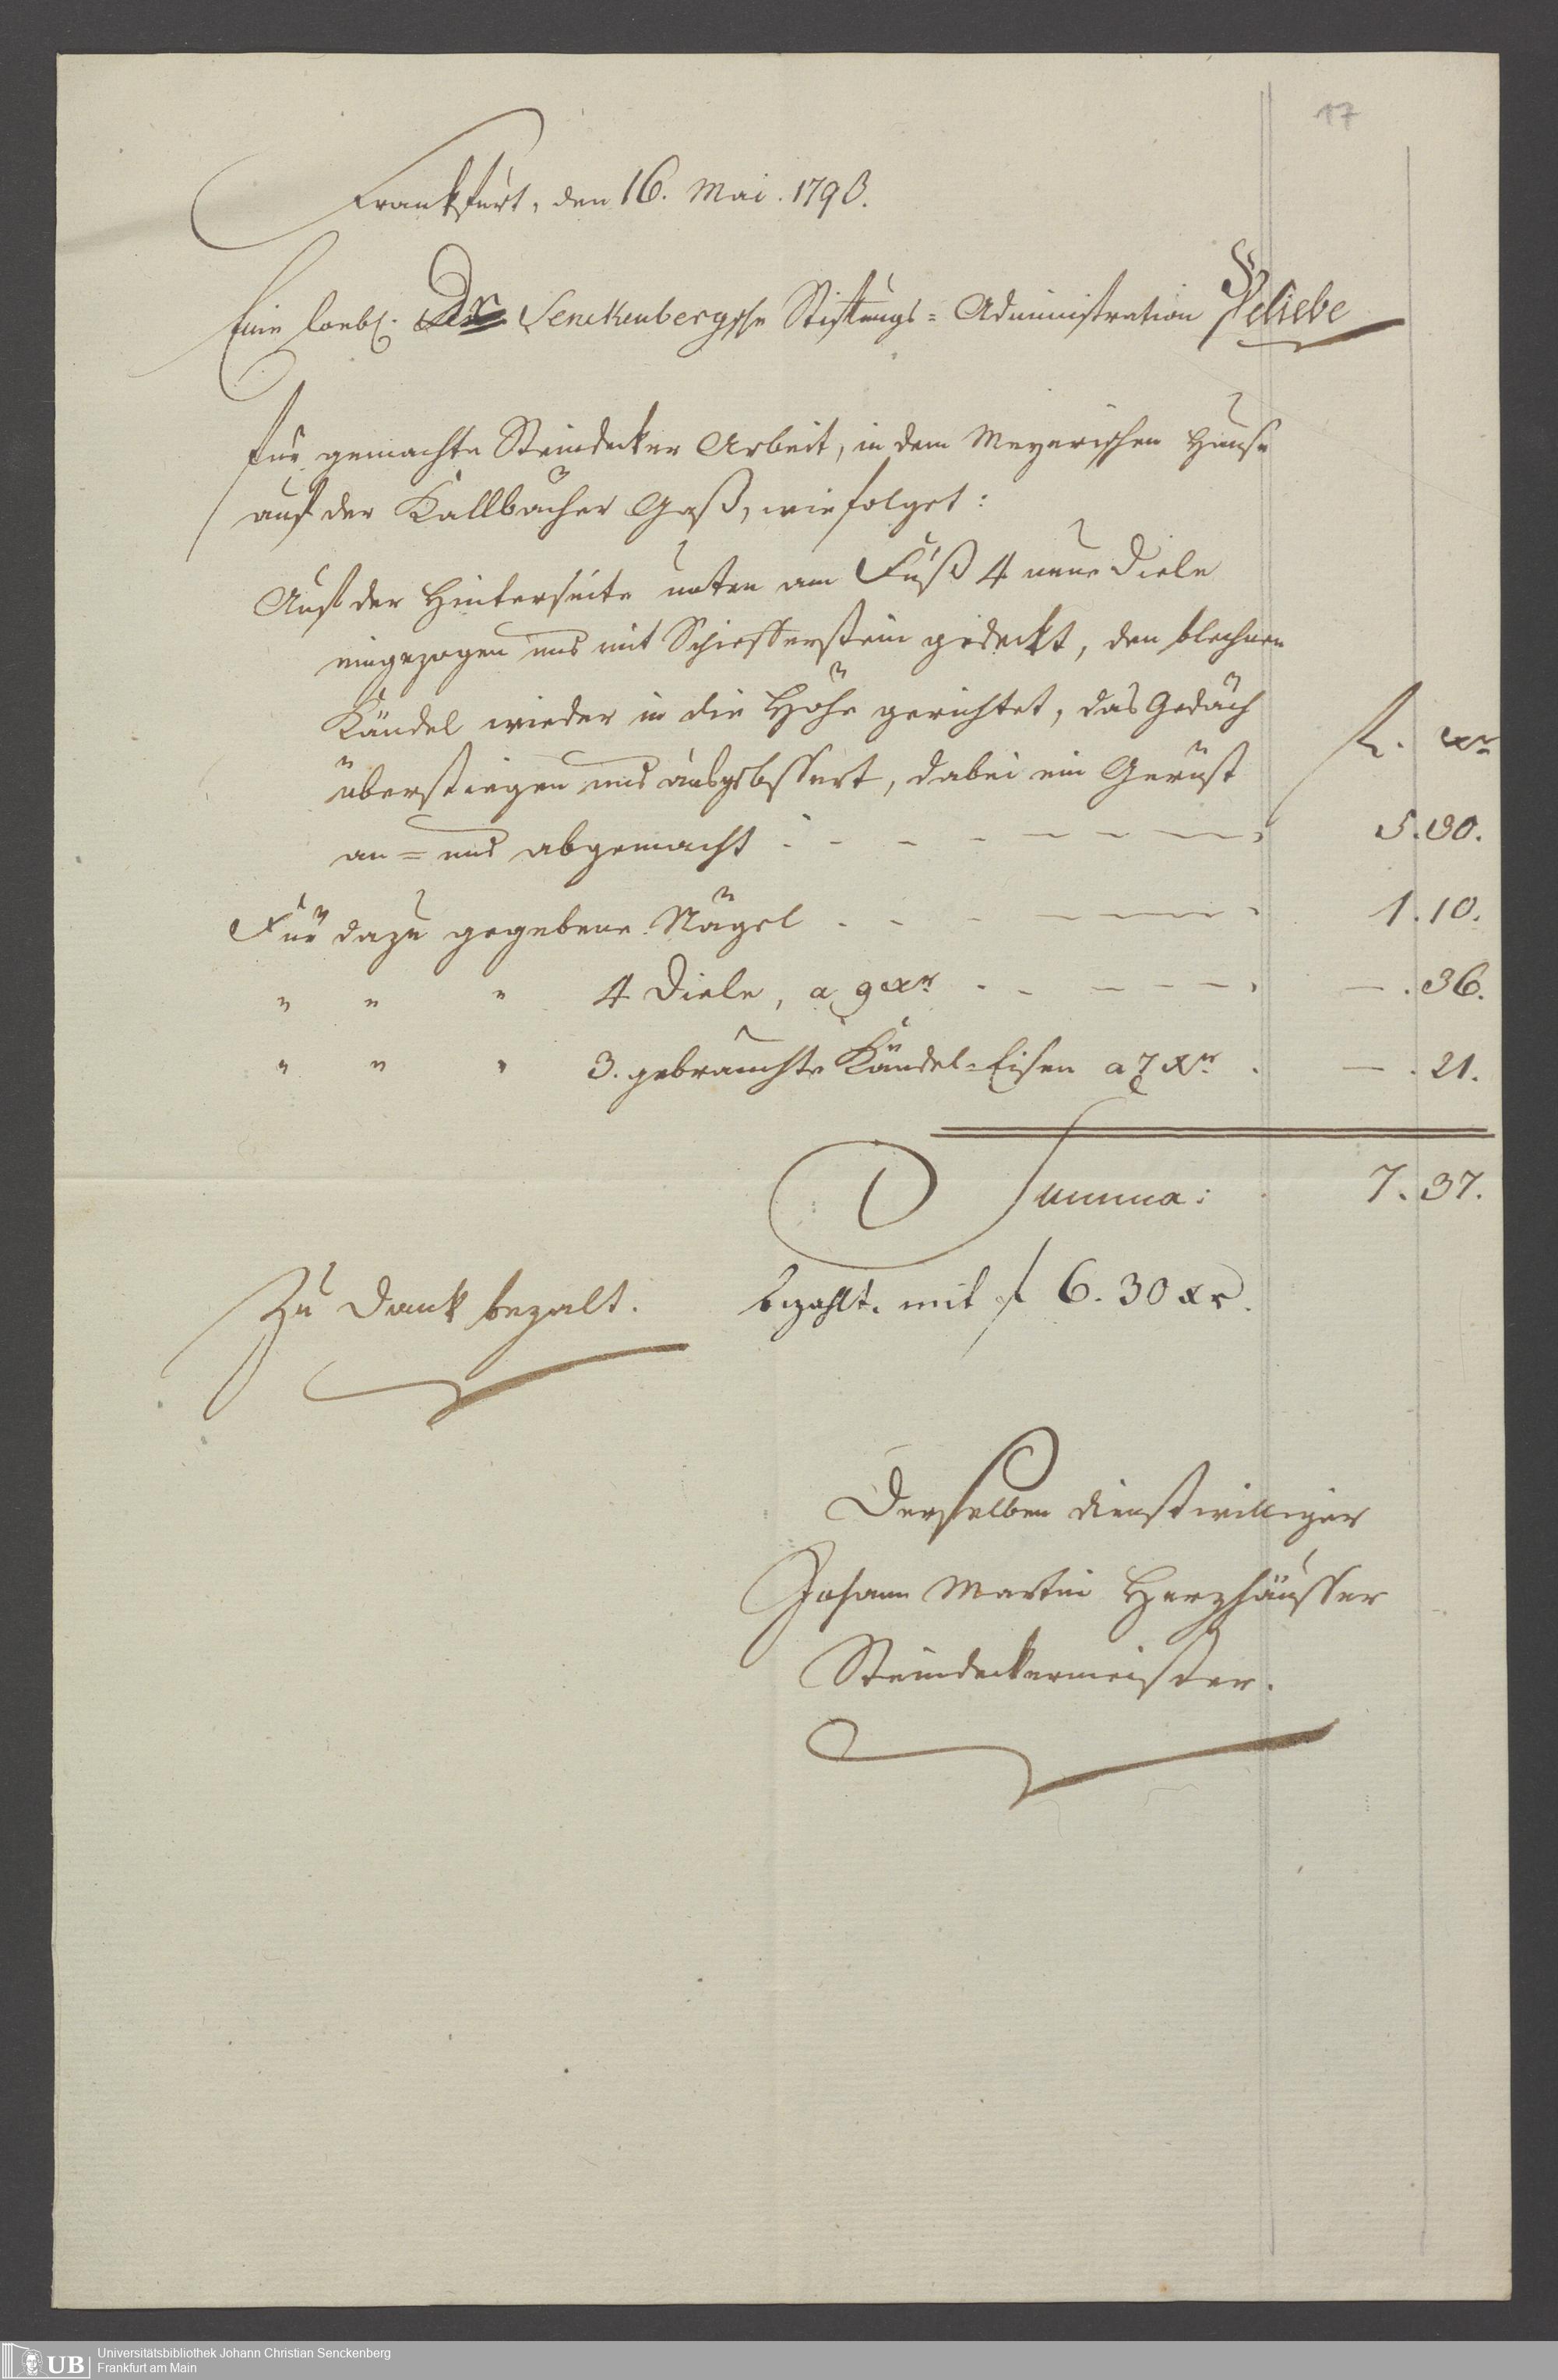 17
Frankfurt, den 16. Mai. 1793.
Eine loebl. Dr. Senckenbergsche Stiftungs=Administration Beliebe
für gemachte Steindecker Arbeit, in dem Meyerischen Hause
auf der Kallbächer Gaß, wie folget:
Auf der Hinterseite unten am Fuß 4 neue Diele
eingezogen und mit Schiefferstein gedeckt, den blechnen
Kändel wieder in die Höhe gerichtet, das Gedäch
fl. xr
überstiegen und ausgebessert, dabei ein Gerüst
an= und abgemacht - - - - - - - 5.30.
Für dazu gegebene Nägel - - - - - - 1.10.
" " " 4 Diele, a 9 xr - - - - - - . 36.
" " " 3. gebrauchte Kändel=Eisen a 7 xr . - . 21.
Summa: 7. 37.
Zu Dank bezalt. bezahlt. mit f 6. 30 xr.
Derselben dienstwilliger
Johann Martin Herzhäusser
Steindeckermeister.
UB
Universitätsbibliothek Johann Christian Senckenberg
Frankfurt am Main